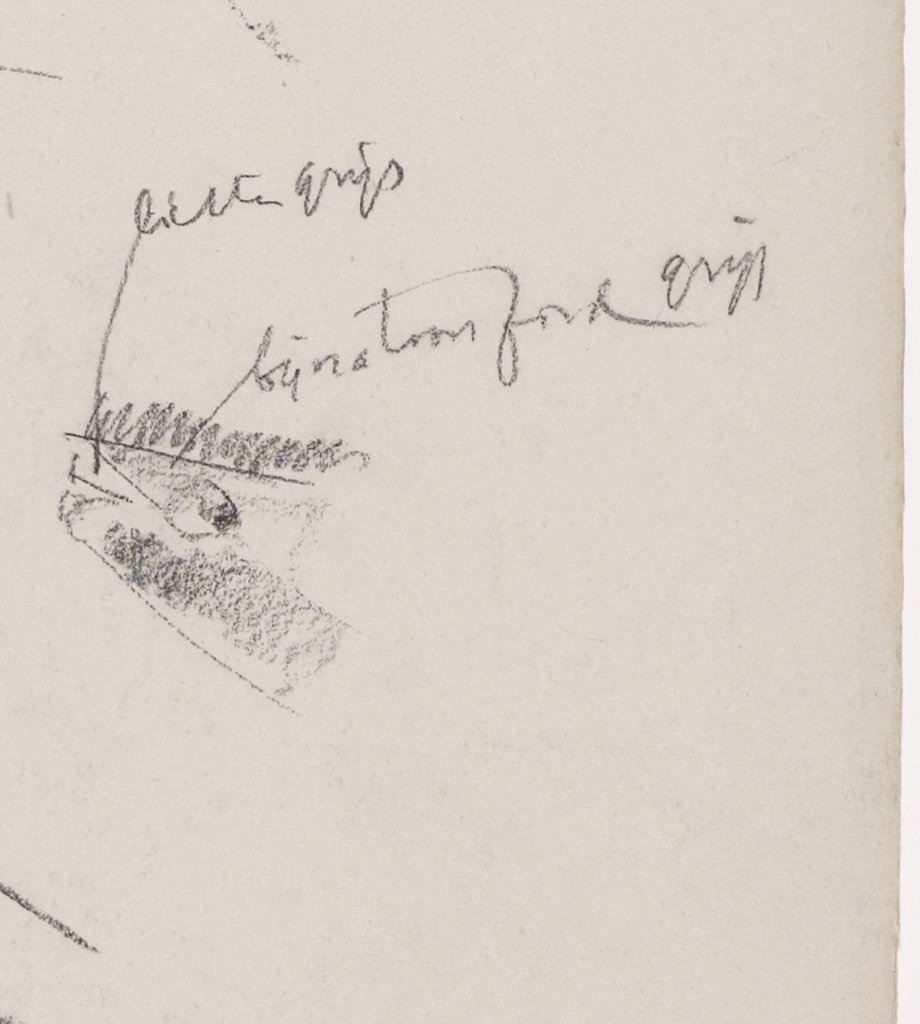 lichte grijs
bijna toon fond grijs